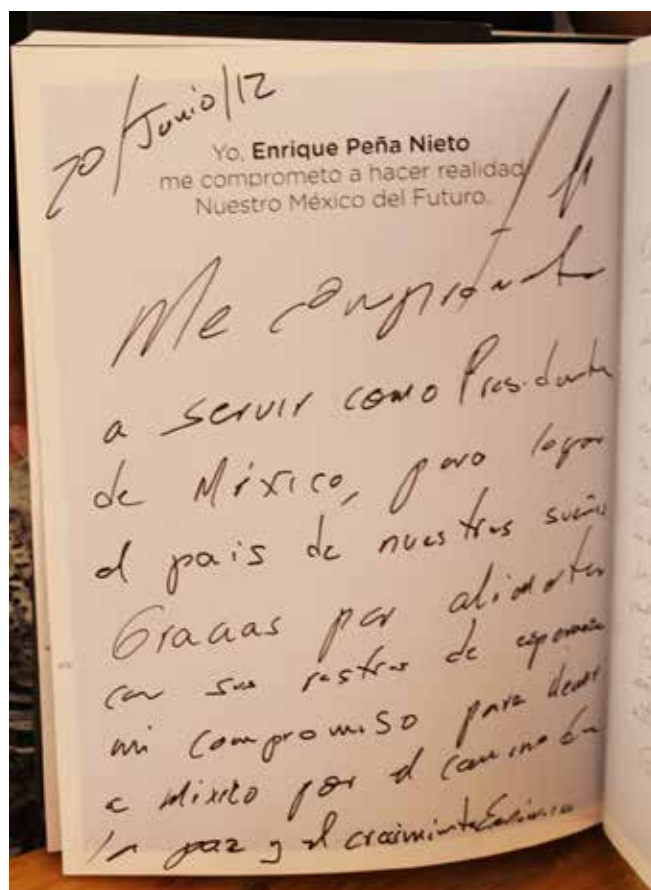 20/Junio/12
Yo, Enrique Peña Nieto
me comprometo a hacer realidad
Nuestro México del Futuro.
Me comprometo
a servir como Presidente
de México, para lograr
el pais de nuestros sueños
Gracias por alimentar
con sus rostros de esperanza
mi compromiso para llevar
a México por el camino de
la paz y el crecimiento Económico